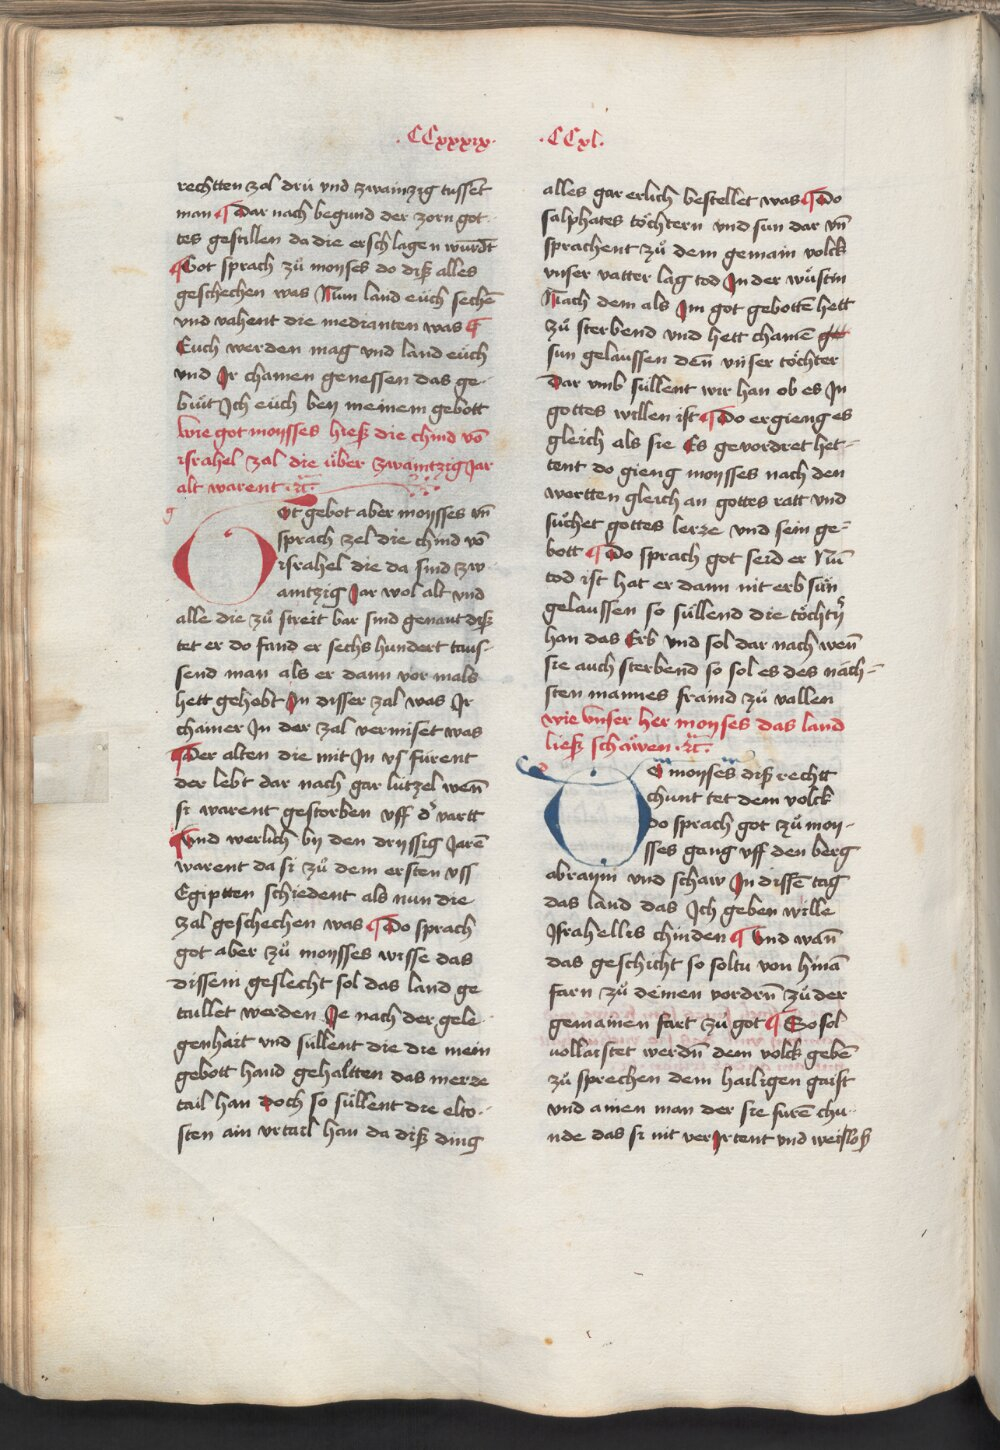 ·CCxxxix·
rechtten zal drü vnd zwainzig tusset
man ¶ Dar nach begund der zorn got
tes gestillen da die erschlagen wurdēt
¶ Got sprach zů moyses do diß alles
geschechen was Nun land eüch sechē
vnd vahent die medianten was ¶
Euch werden mag vnd land eüch
vnd Ir chainen genessen das ge-
büt Ich eüch bey meinem gebott
wie got moysses hieß die chind vō
israhel zal die über zwaintzig Jar
alt warent ·ꝛc·
g
Ot gebot aber moysses vn̄
sprach zel die chind vō
israhel die da sind zw-
aintzig Jar wol alt vnd
alle die zů streit bar sind genant diß
tet er do fand er sechs hundert taus-
send man als er dann vor mals
hett gehebt In disser zal was Ir
chainer In der zal vermiset was
¶ Der alten die mit In vs fürent
der lebt dar nach gar lützel wen̄
si warent gestorben vff d' vartt
¶ Vnd werlich by den dryssig Jarē
warent da si zů dem ersten vss
Egiptten schiedent als nun die
zal geschechen was ¶ Do sprach
got aber zů moysses wisse das
dissem geslecht sol das land ge
taillet werden Je nach der gele
genhait vnd süllent die die mein
gebott hand gehaltten das merre
tail han Doch so süllent die elto-
sten ain vrtail han da diß ding
·CCxl·
alles gar erlich bestellet was ¶ Do
salphates töchtern vnd sun dar vn̄
sprachent zů dem gemain volck
vnser vatter lag tod In der wůstin
Nach dem als Im got gebottē hett
zů sterbend vnd hett chainē
sun gelaussen den̄ vnser töchter
Dar vmb süllent wir han ob es In
gottes willen ist ¶ Do ergieng es
gleich als sie Es gevordret het-
tent do gieng moysses nach den
wortten gleich an gottes ratt vnd
sůchet gottes lerre vnd sein ge-
bott ¶ Do sprach got seid er Nū
tod ist hat er dann nit erb sün
gelaussen so süllend die töchtr̄
han das Erb vnd sol dar nach wen̄
sie auch sterbend so sol es des näch-
sten mannes fraind zů vallen
wie vnser her moyses das land
ließ schäwen ·ꝛc·
O moyses diß rechtt
chunt tet dem volck
Do sprach got zů moy-
sses gang vff den berg
abraym vnd schaw In dissē tag
das land das Ich geben wille
Israhellis chinden ¶ Vnd wan̄
das geschicht so soltu von hinā
farn zů deinen vordrn̄ zů der
gemainen fart zů got ¶ So sol
vollaistet werdn̄ dem volck gebē
zů sprechen dem hailigen gaist
vnd ainen man der sie fürē chu-
nde das si nit verIrtent vnd weißloß